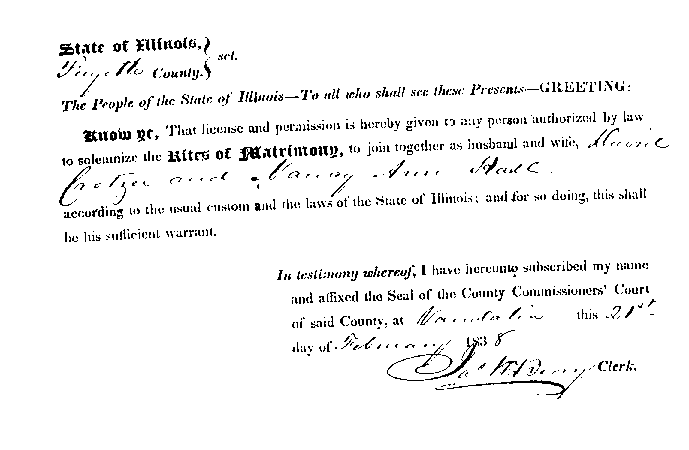 State of Illinois, } sct.
Fayette County.
The People of the State of Illinois—To all who shall see these Presents—GREETING:
Know ye, That license and permission is hereby given to any person authorized by law
to solemnize the Rites of Matrimony, to join together as husband and wife, David
Crotzer and Nancy Ann Hall
according to the usual custom and the laws of the State of Illinois; and for so doing, this shall
be his sufficient warrant.
In testimony whereof, I have hereunto subscribed my name
and affixed the Seal of the County Commissioners' Court
of said County, at Vandalia this 21st
day of February 1838
Jas W. Berry Clerk.